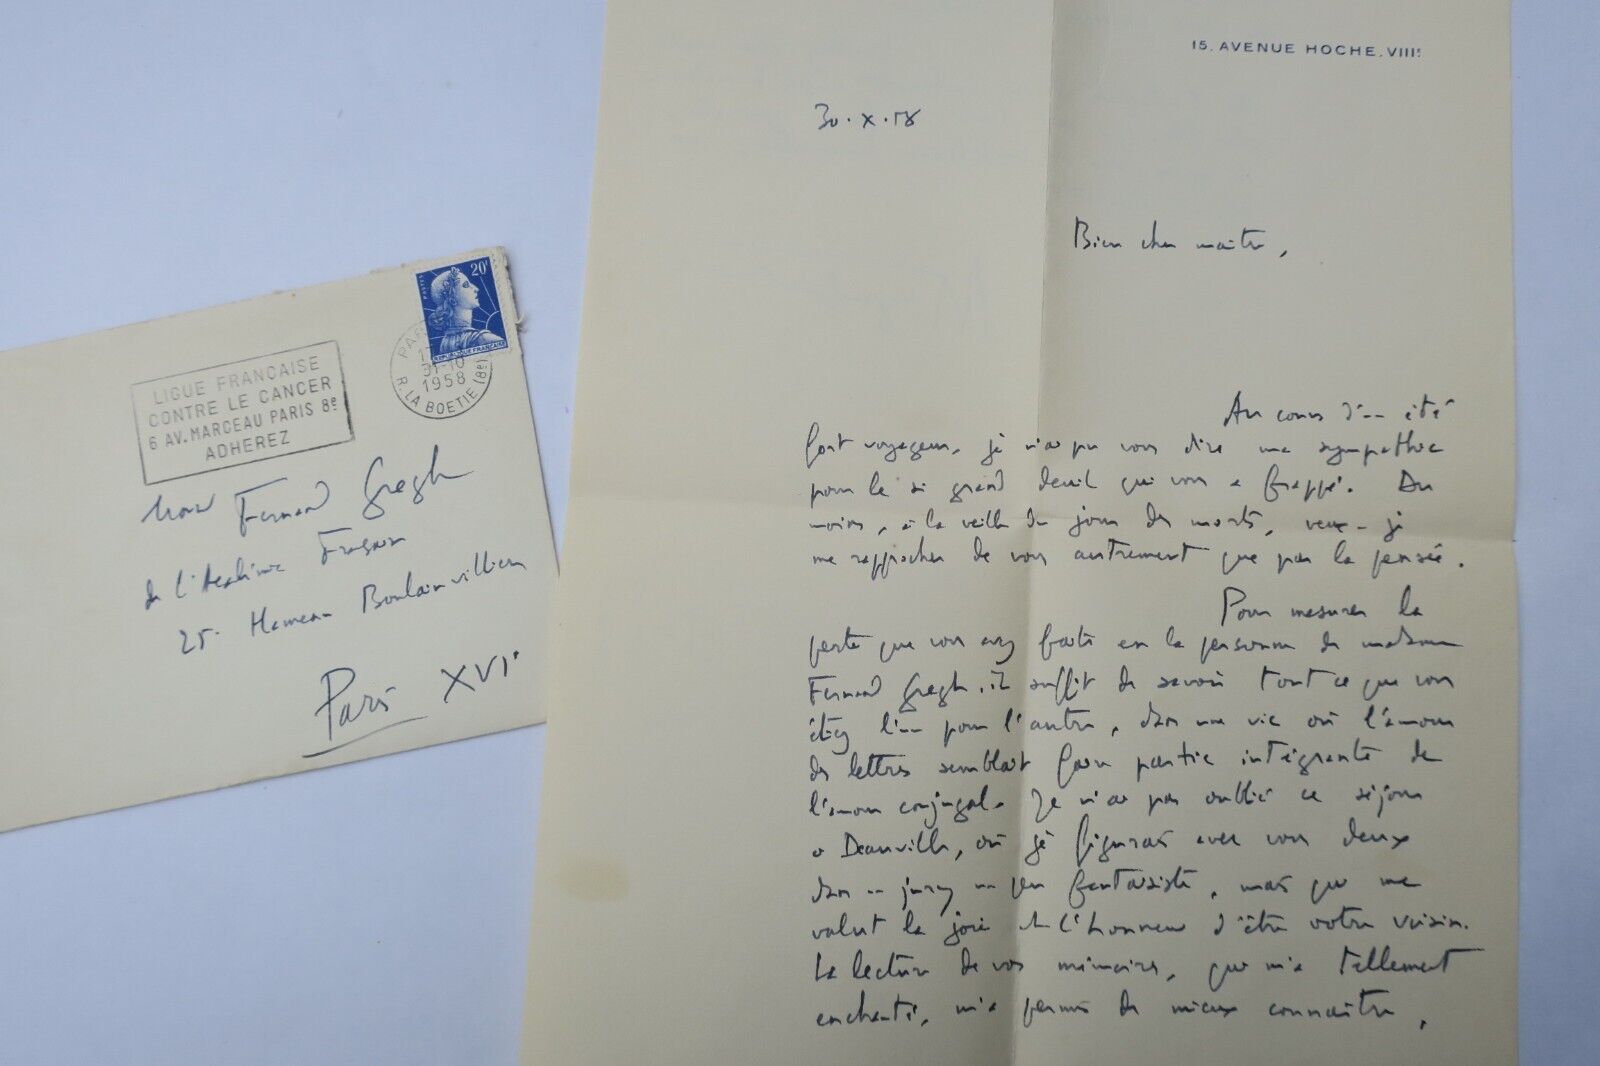 LIGUE FRANÇAISE
CONTRE LE CANCER
6 AV. MARCEAU PARIS 8e
ADHEREZ
20F
POSTES
REPUBLIQUE FRANÇAISE
PAR
17
31-10
1958
R. LA BOETIE (8e)
Fernand Gregh
de l'Académie Française
25 Hameau Boulainvilliers
Paris XVIe
15. AVENUE HOCHE. VIIIe
30.X.58
Bien cher maître,
Au cours d'un été
fort voyageur, je n'ai pu vous dire ma sympathie
pour le si grand deuil qui vous a frappé. Du
moins, à la veille du jour des morts, veux-je
me rapprocher de vous autrement que par la pensée.
Pour mesurer la
perte que vous avez faite en la personne de madame
Fernand Gregh, il suffit de savoir tout ce que vous
étiez l'un pour l'autre, dans une vie où l'amour
des lettres semblait faire partie intégrante de
l'amour conjugal. Je n'ai pas oublié ce séjour
à Deauville, où je figurais avec vous deux
dans un jury un peu fantaisiste, mais qui me
valut la joie et l'honneur d'être votre voisin.
La lecture de vos mémoires, qui m'a tellement
enchanté, m'a permis de mieux connaître,